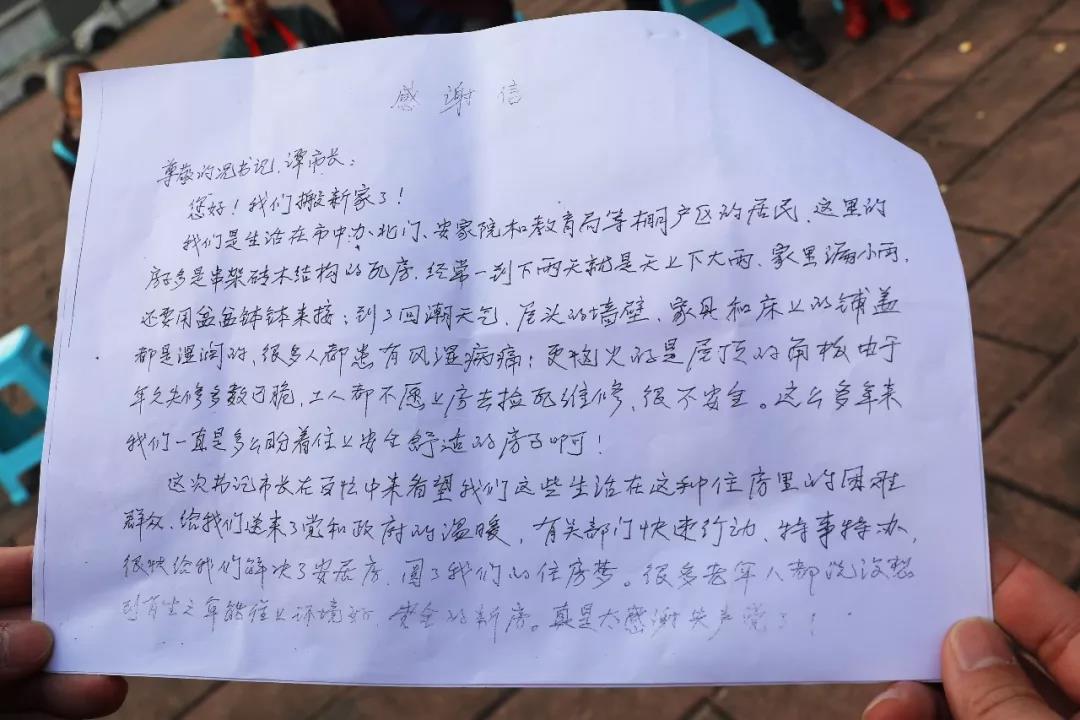 感谢信
尊敬的况书记、谭市长：
您好！我们搬新家了！
我们是生活在市中办北门、安家院和教育局等棚户区的居民，这里的
房子多是串架砖木结构的瓦房，经常一到下雨天就是天上下大雨、家里漏小雨，
还要用盆盆钵钵来接；到了回潮天气，屋头的墙壁、家具和床上的铺盖
都是湿润的，很多人都患有风湿病痛；更恼火的是屋顶的角板由于
年久失修多数已脆，工人都不愿上房去捡瓦维修，很不安全。这么多年来
我们一直是多么盼着住上安全舒适的房子啊！
这次书记市长在百忙中来看望我们这些生活在这种住房里的困难
群众，给我们送来了党和政府的温暖，有关部门快速行动、特事特办，
很快给我们解决了安居房，圆了我们的住房梦。很多老年人都说没想
到有生之年能住上环境好 安全的新房。真是太感谢共产党了！